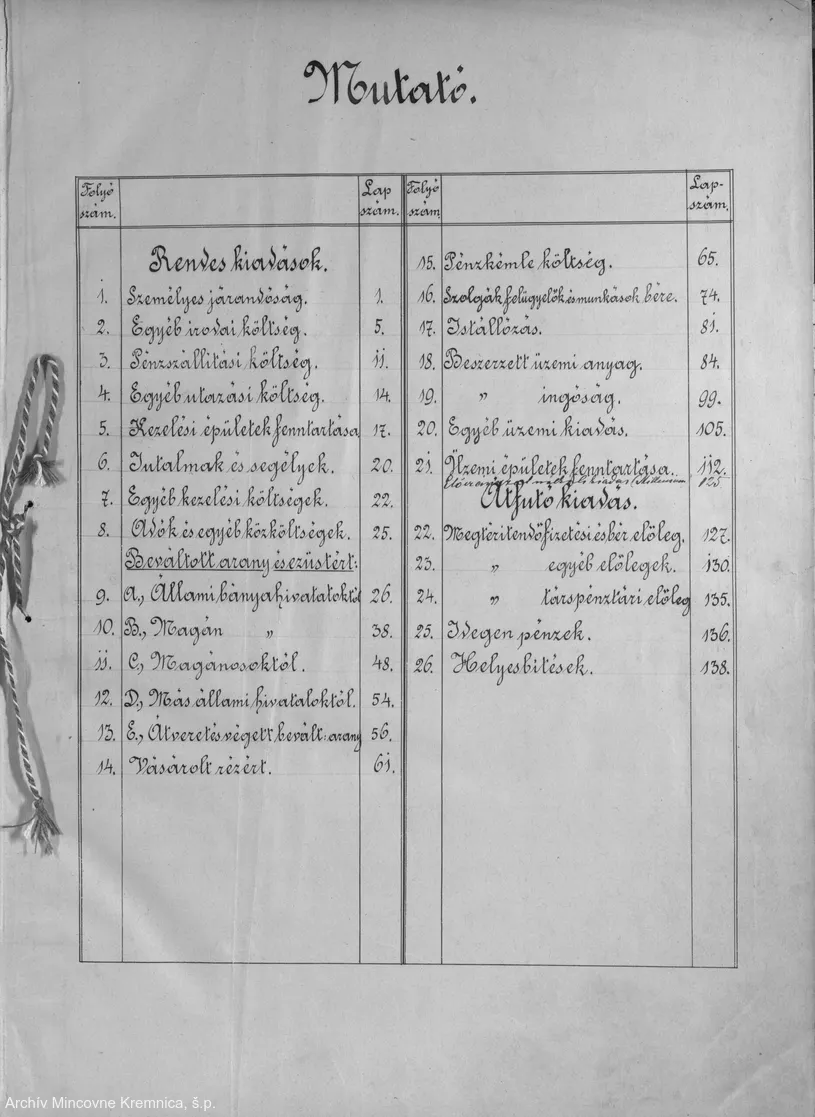 Mutató.
Folyó szám.
Lap szám.
Rendes kiadások.
1. Személyes járandóság. 1.
2. Egyéb irodai költség. 5.
3. Pénzszállitási költség. 11.
4. Egyéb utazási költség. 14.
5. Kezelési épületek fenntartása 17.
6. Jutalmak és segélyek. 20.
7. Egyéb kezelési költségek. 22.
8. Adók és egyéb közköltségek. 25.
Beváltott arany és ezüstért:
9. A., Állami bányahivatatoktól 26.
10. B., Magán " 38.
11. C., Magánosoktól. 48.
12. D., Más állami hivataloktól. 54.
13. E., Átveretés végett bevált: arany 56.
14. Vásárolt rézért. 61.
Folyó szám
Lap-szám.
15. Pénzkémle költség. 65.
16. Szolgák felügyelők és munkások bére. 74.
17. Istállózás. 81.
18. Beszerzett üzemi anyag. 84.
19. " ingóság. 99.
20. Egyéb üzemi kiadás. 105.
21. Üzemi épületek fenntartása. 112.
kiadás (Millenium) 125
Átfutó kiadás.
22. Megtéritendő fizetési és bér előleg. 127.
23. " egyéb előlegek. 130.
24. " társpénztári előleg 135.
25. Idegen pénzek. 136.
26. Helyesbitések. 138.
Archív Mincovne Kremnica, š.p.